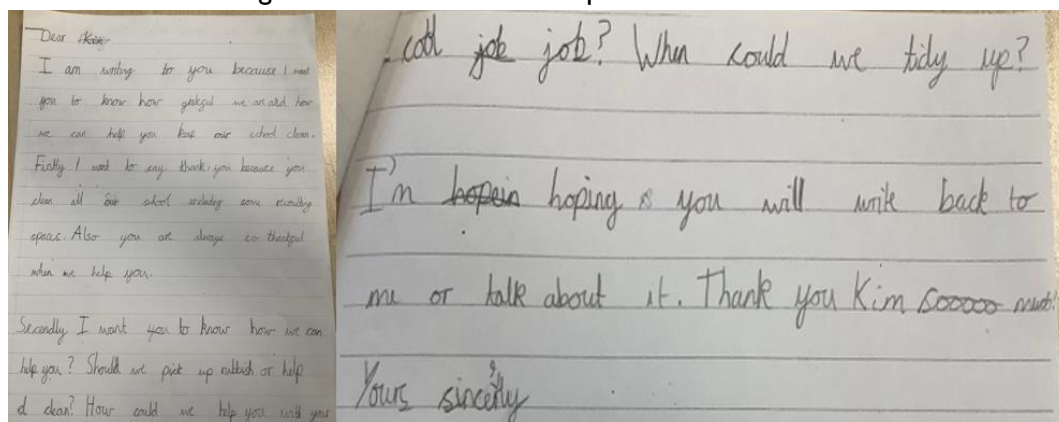 Dear Kim
I am writing to you because I want
you to know how grateful we are and how
we can help you keep our school clean.
Firstly I want to say thank you because you
clean all our school including some revolting
spaces. Also you are always so thankful
when we help you.
Secondly I want you to know how we can
help you? Should we pick up rubbish or help
clean? How could we help you with your
job job? When could we tidy up?
I'm hopein hoping you will write back to
me or talk about it. Thank you Kim sooooo much!
Yours sincerly